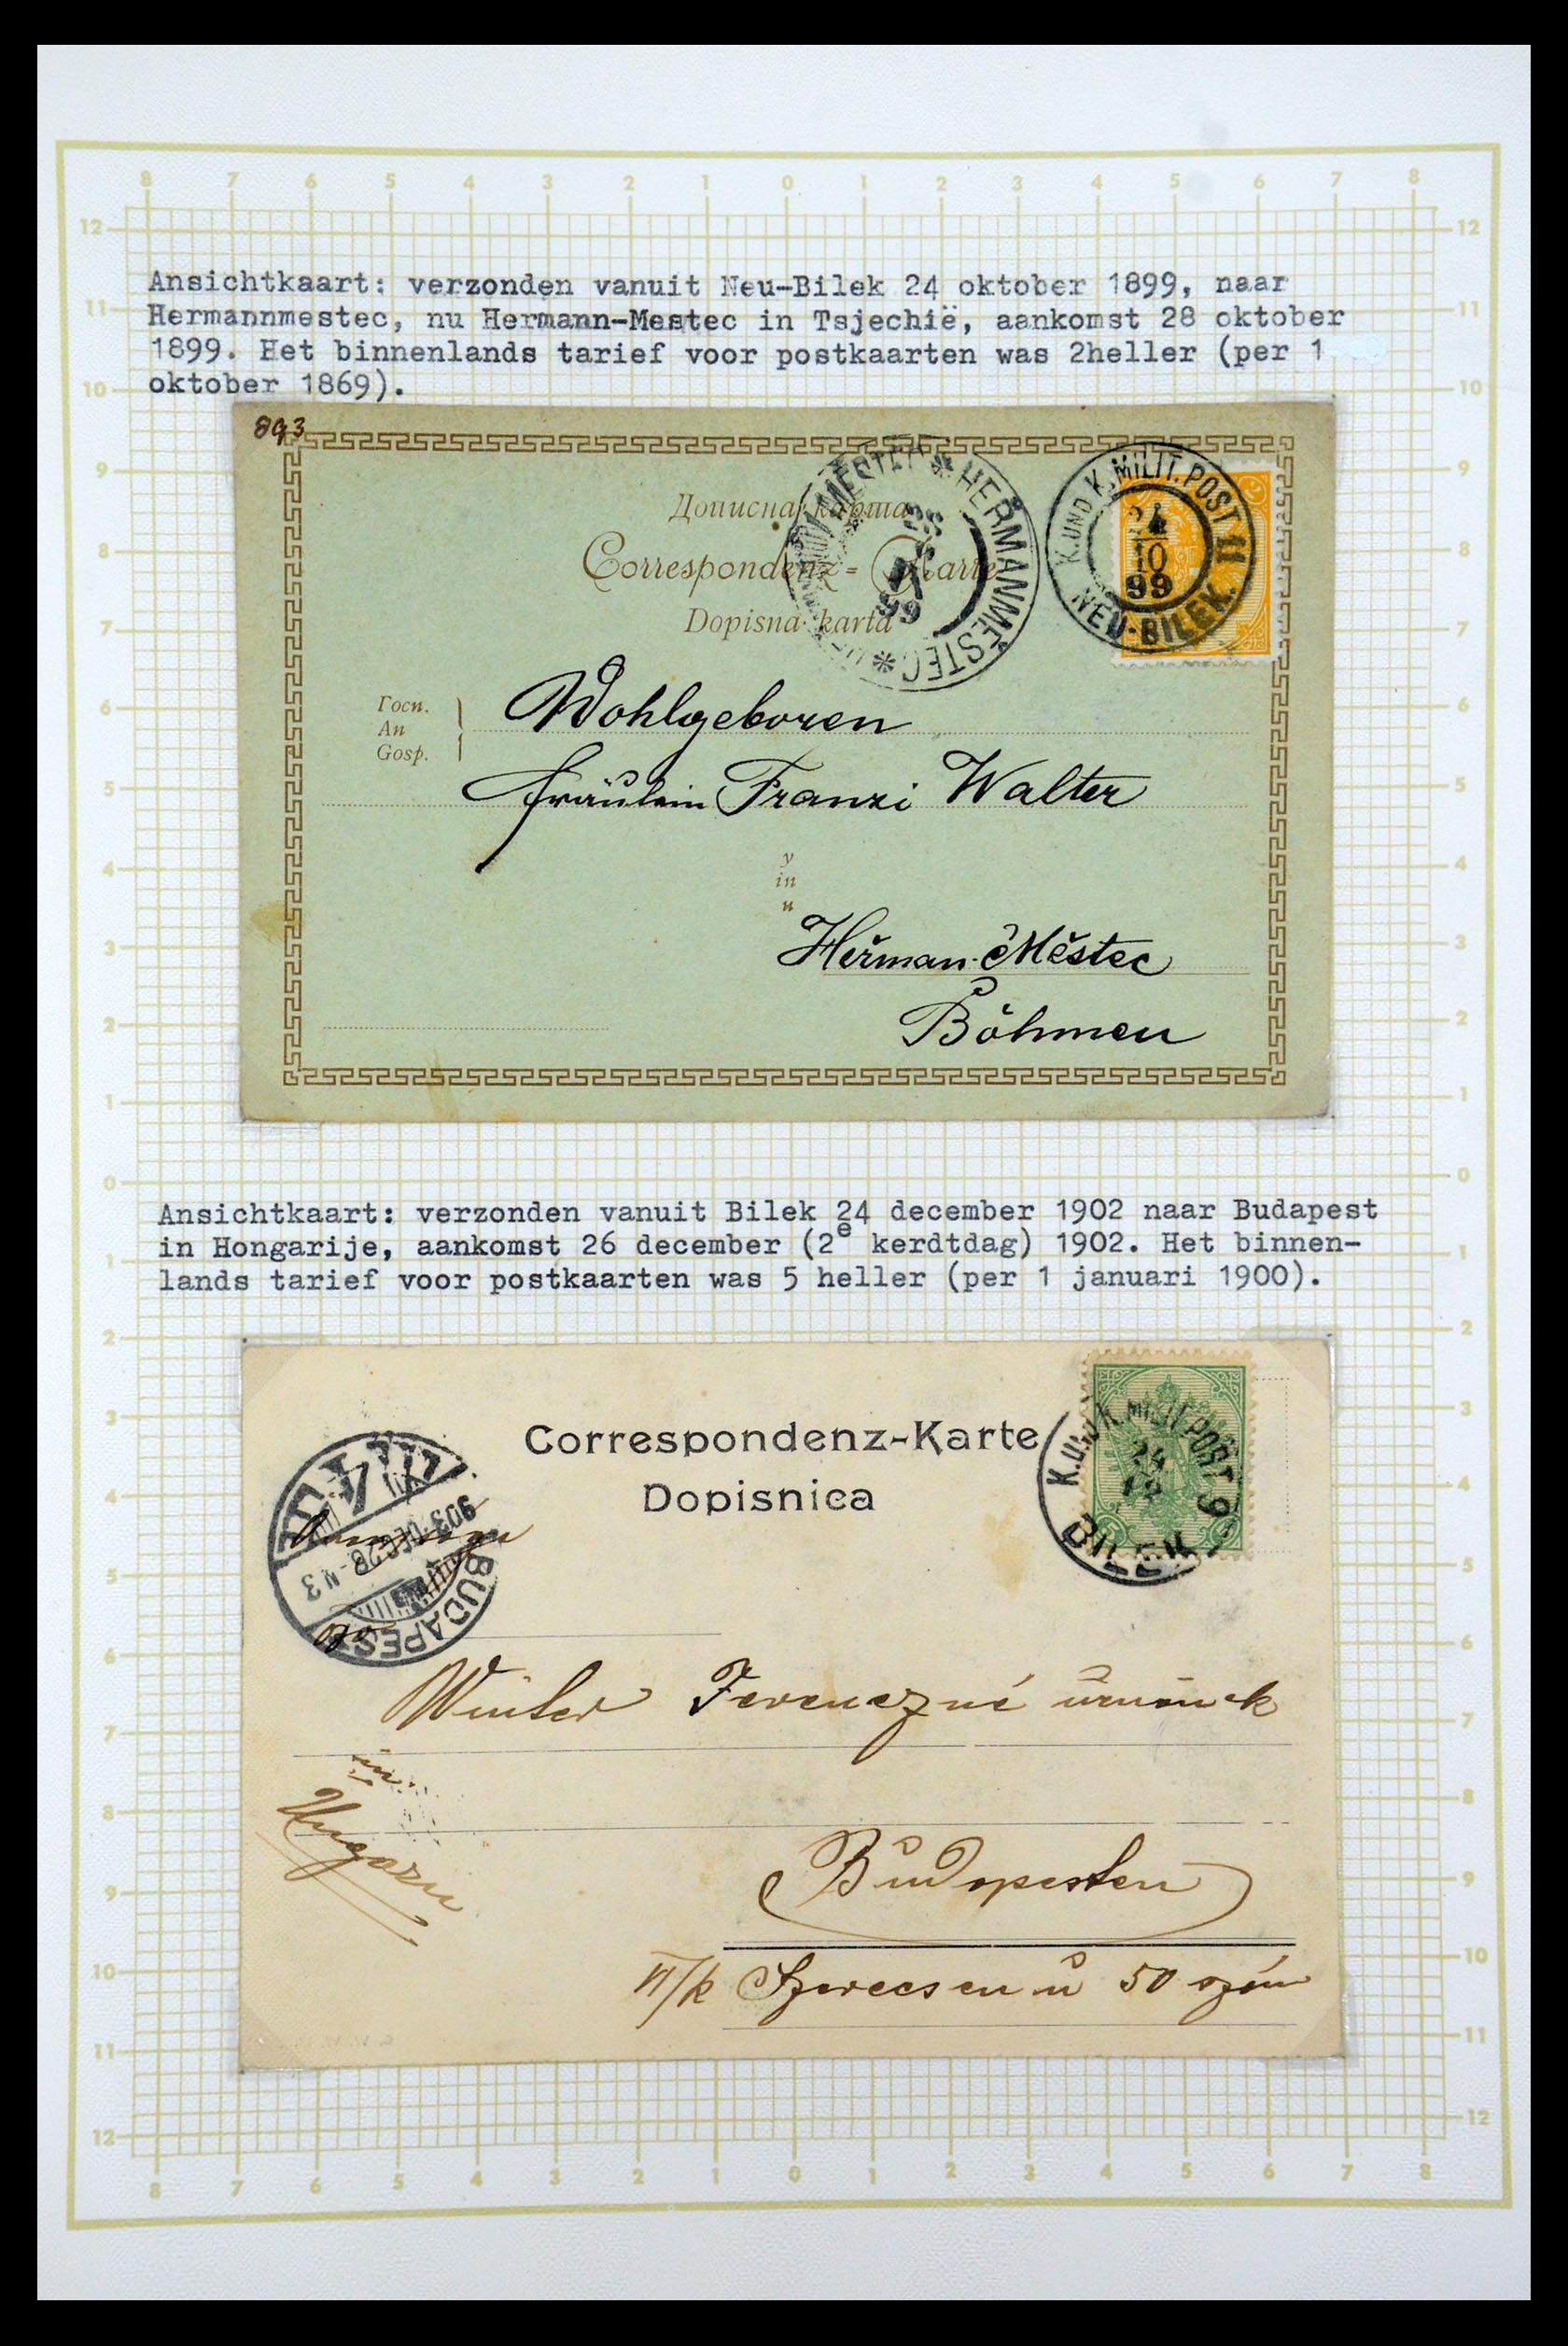 Ansichtkaart: verzonden vanuit Neu-Bilek 24 oktober 1899, naar
Hermannmestec, nu Hermann-Mestec in Tsjechië, aankomst 28 oktober
1899. Het binnenlands tarief voor postkaarten was 2heller (per 1
oktober 1869).
893
Дописна карта
Correspondenz-Karte
Dopisna karta
HEŘMANMĚSTEC
28
99
K. UND K. MILIT. POST 11
24
10
99
NEU-BILEK.
Госп.
An
Gosp.
Wohlgeboren
Fräulein Franzi Walter
у
in
u
Heřman-Městec
Böhmen
Ansichtkaart: verzonden vanuit Bilek 24 december 1902 naar Budapest
in Hongarije, aankomst 26 december (2e kerdtdag) 1902. Het binnen-
lands tarief voor postkaarten was 5 heller (per 1 januari 1900).
Correspondenz-Karte
Dopisnica
K.u.K. MILIT. POST 9
24
12
BILEK
BUDAPEST
Winter Ferenczné úrnőnek
in
Ungarn
Budapesten
VI/k Szerecsen u 50 szám